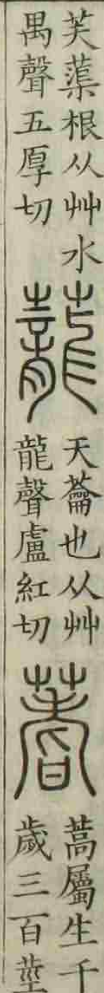 芙蕖根从艸水
禺聲五厚切
蘢
天蘥也从艸
龍聲盧紅切
蓍
蒿屬生千
歲三百莖